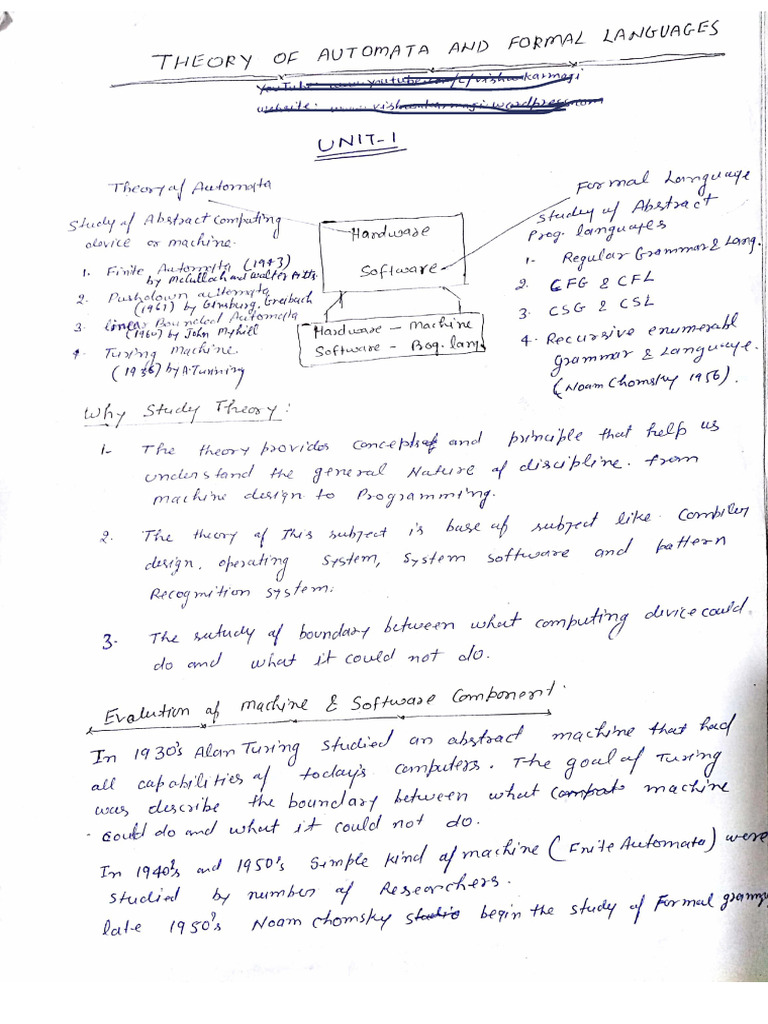 THEORY OF AUTOMATA AND FORMAL LANGUAGES
YouTube: www.youtube.com/c/vishwakarmagi
website: www.vishwakarmagi.wordpress.com
UNIT-1
Theory of Automata
Study of Abstract Computing
device or machine
1. Finite Automata (1943)
by McCulloch and Walter Pitts
2. Pushdown automata
(1961) by Ginsburg, Greibach
3. linear Bounded Automata
(1960) by John Myhill
4. Turing Machine.
(1936) by A. Turning
Hardware
Software
Hardware – Machine
Software – Bog. lang
Formal Language
Study of Abstract
Prog. languages
1- Regular Grammar & Lang.
2. CFG & CFL
3. CSG & CSL
4. Recursive enumerabl
grammar & Language.
(Noam Chomsky 1956).
Why Study Theory:
1- The theory provides concepts of and principle that help us
understand the general Nature of discipline. from
machine design to Programming.
2. The theory of This subject is base of subject like Compiler
design, operating System, System software and pattern
Recognition System.
3. The sutudy of boundary between what computing device could
do and what it could not do.
Evalution of machine & Software Component.
In 1930's Alan Turing studied an abstract machine that had
all capabilities of today's computers. The goal of Turing
was describe the boundary between what machine
could do and what it could not do.
In 1940's and 1950's Simple kind of machine (Finite Automata) were
studied by number of Researchers.
late 1950's Noam Chomsky begin the study of Formal gramm